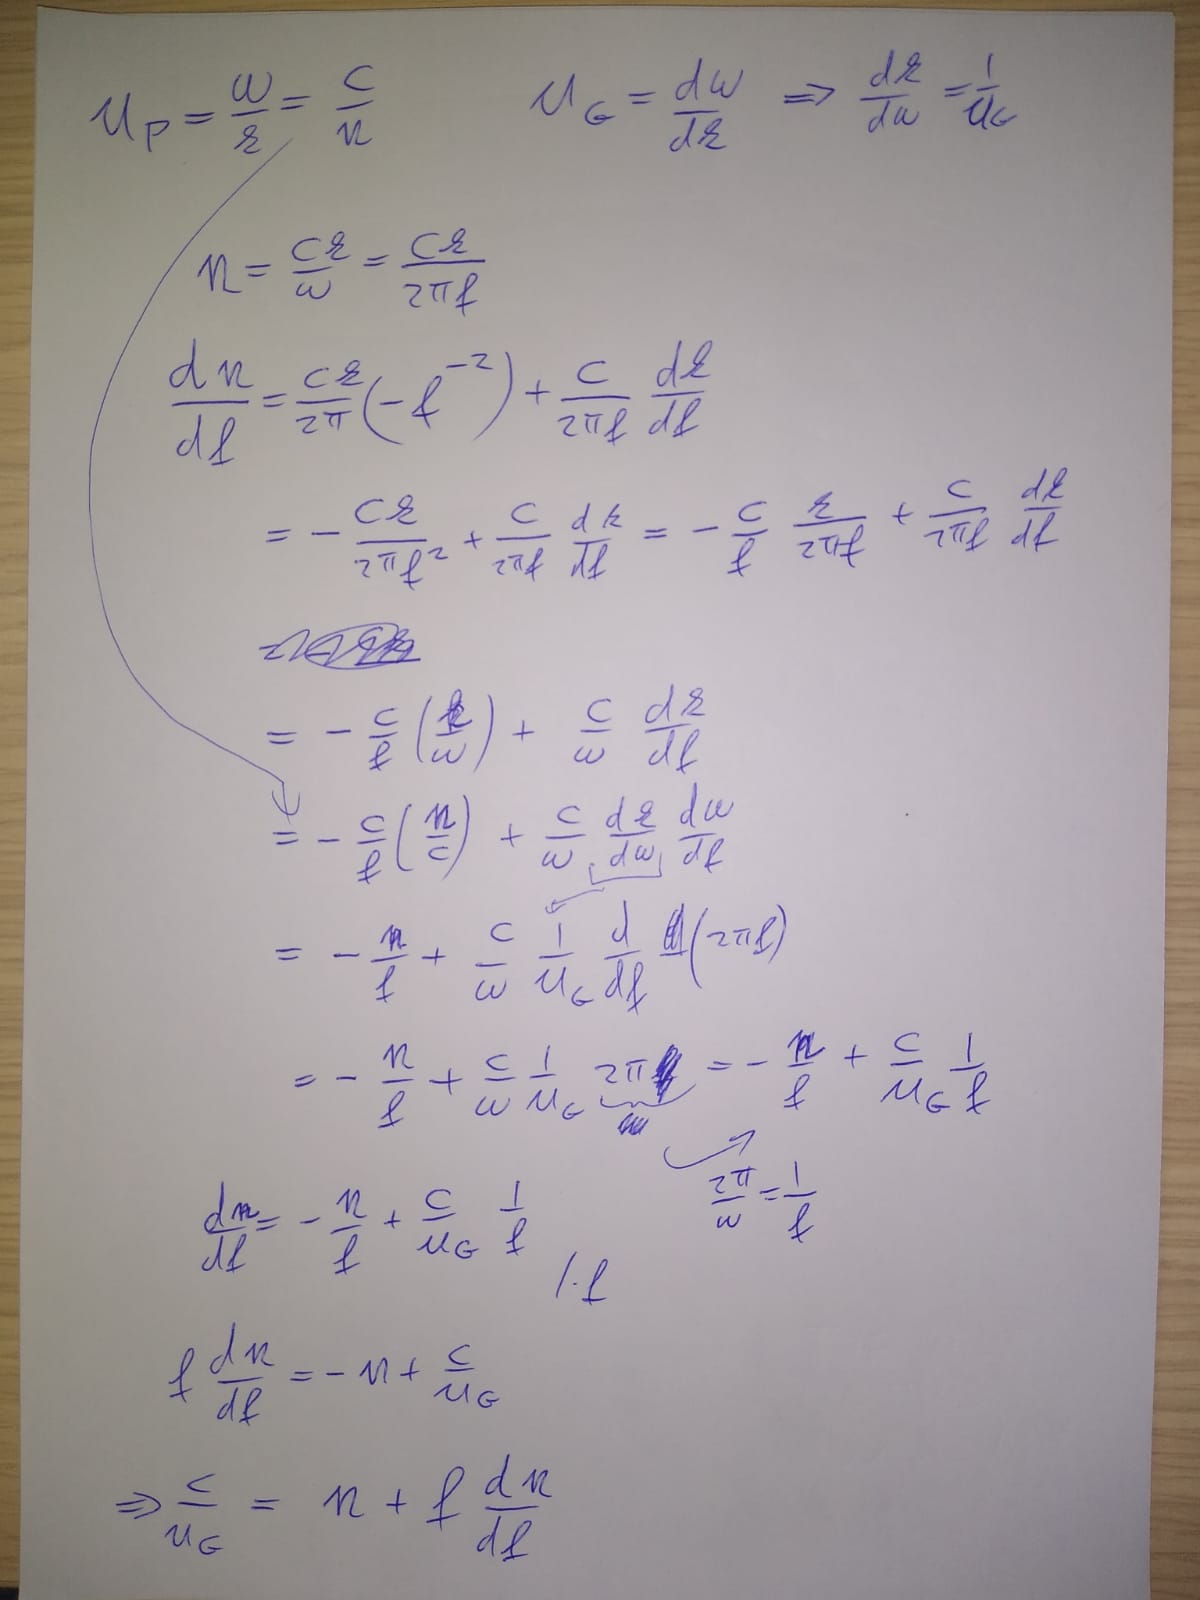 u_P = ω/k = c/n    u_G = dω/dk ⇒ dk/dω = 1/u_G
n = ck/ω = ck/2πf
dn/df = ck/2π (-f^-2) + c/2πf dk/df
= - ck/2πf² + c/2πf dk/df = - c/f k/2πf + c/2πf dk/df
= - c/f (k/ω) + c/ω dk/df
= - c/f (n/c) + c/ω dk/dω dω/df
= - n/f + c/ω 1/u_G d/df (2πf)
= - n/f + c/ω 1/u_G 2π = - n/f + c/u_G 1/f
2π/ω = 1/f
dn/df = - n/f + c/u_G 1/f
/·f
f dn/df = - n + c/u_G
⇒ c/u_G = n + f dn/df